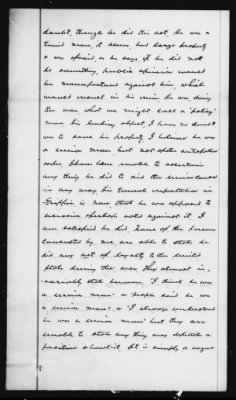 doubt, though he did this not. He was a
timid man, it seems, had large property
& was afraid, as he says, if he did not
do something, public opinion would
be manufactured against him, which
would result in his ruin. He was during
the war, what we might call a "policy"
man his leading object, I have no doubt
was to save his property, I believe he was
a union man but not of the outspoken
order, I have been unable to ascertain
any thing he did to aid the union cause
in any way, his general reputation in
Griffin is now that he was opposed to
secession & perhaps voted against it. I
am satisfied he did. None of the persons
consulted by me are able to state he
did any act of loyalty to the United
States during the war. They almost in-
variably state however, "I think he was
a union man" or "people said he was
a union man" or "I always understood
he was a union man" but they are
unable to state any thing very definite or
positive about it. It is simply a vague